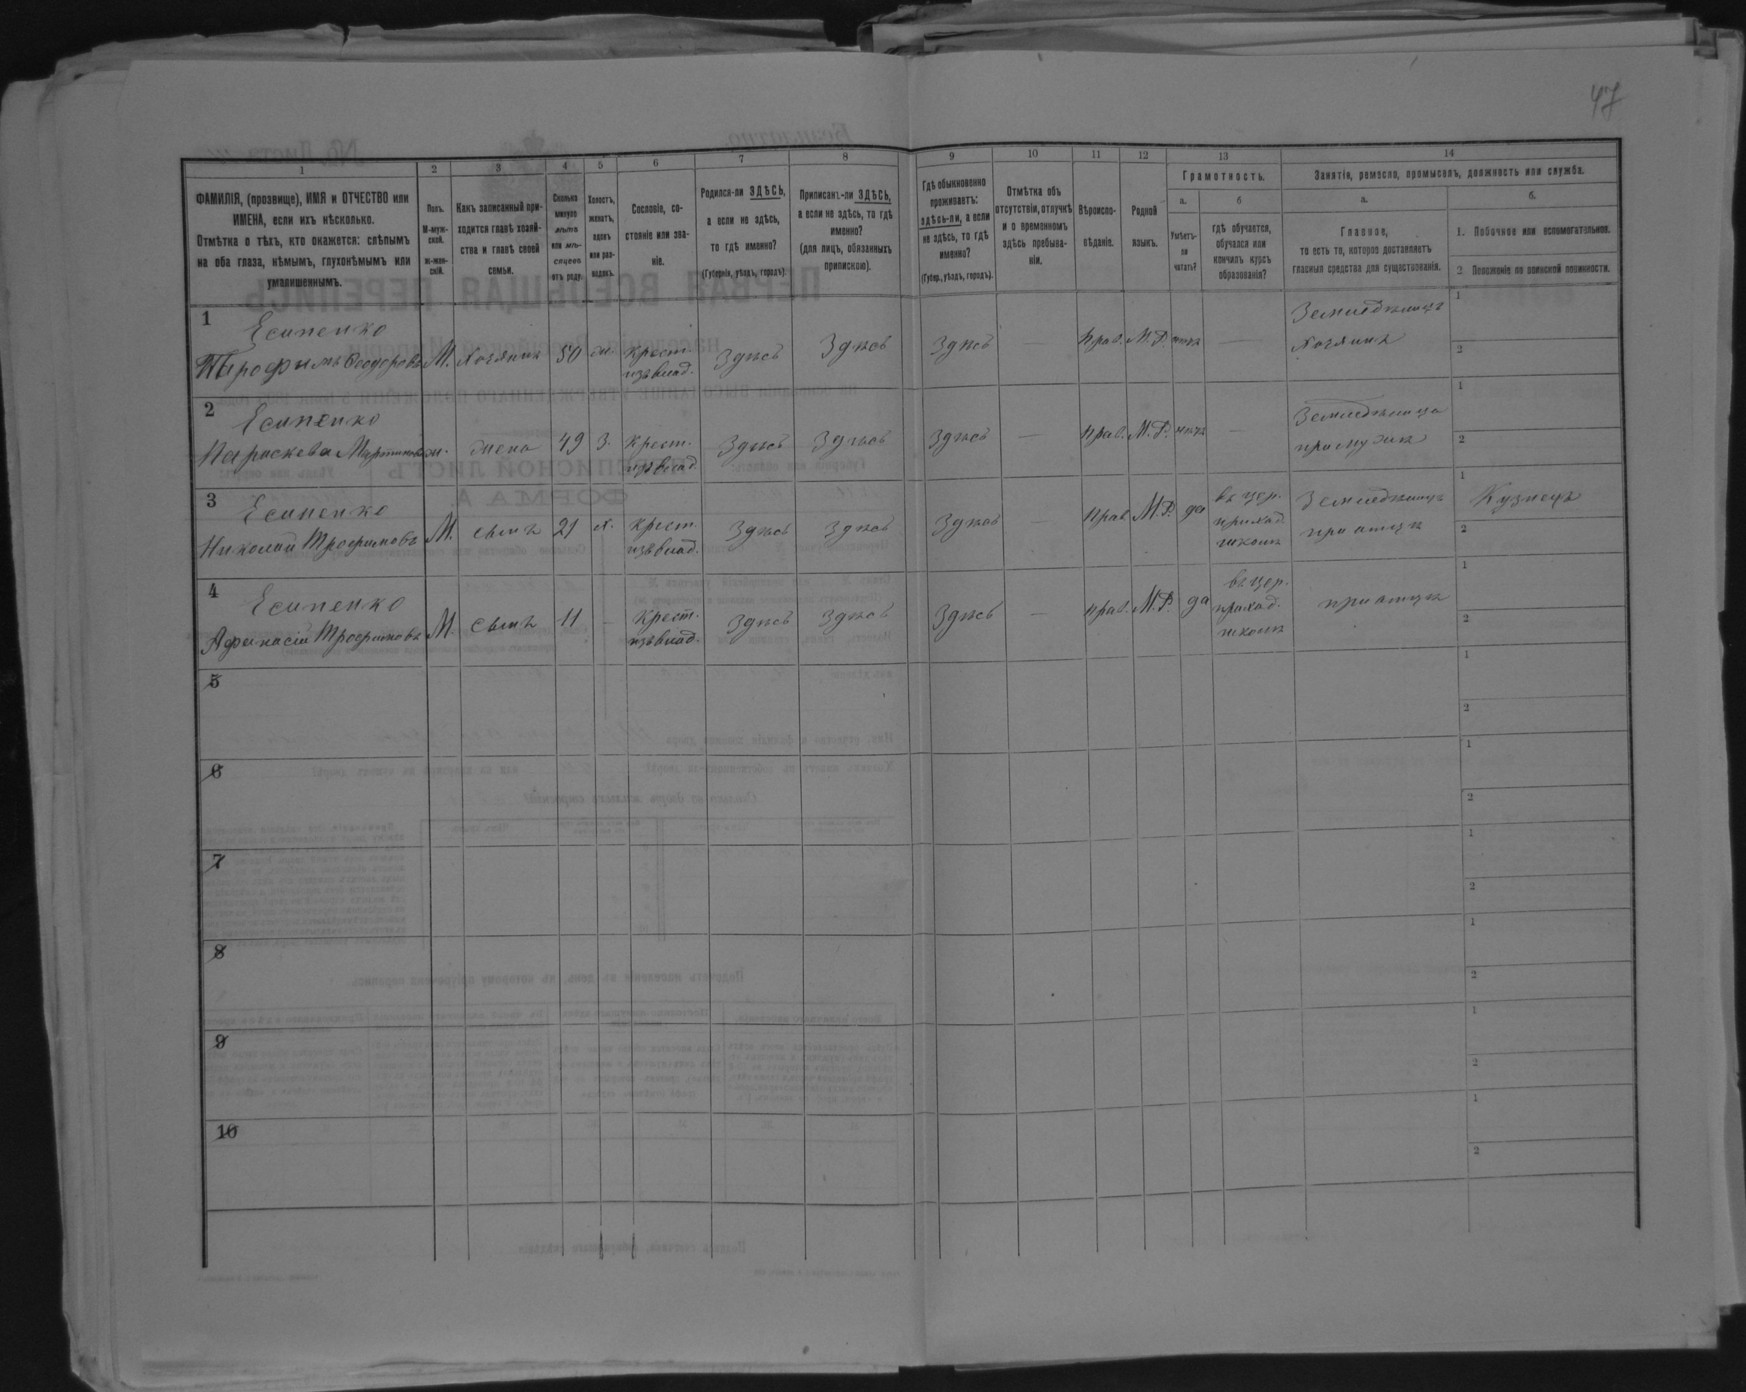 47
1
2
3
4
5
6
7
8
9
10
11
12
13
14
ФАМИЛІЯ, (прозвище), ИМЯ и ОТЧЕСТВО или
ИМЕНА, если ихъ нѣсколько.
Отмѣтка о тѣхъ, кто окажется: слѣпымъ
на оба глаза, нѣмымъ, глухонѣмымъ или
умалишеннымъ.
Полъ.
М-муж-
ской.
ж-жен-
скій.
Какъ записанный при-
ходится главѣ хозяй-
ства и главѣ своей
семьи.
Сколько
минуло
лѣтъ
или мѣ-
сяцевъ
отъ роду.
Холостъ,
женатъ,
вдовъ
или раз-
веденъ.
Сословіе, со-
стояніе или зва-
ніе.
Родился-ли ЗДѢСЬ,
а если не здѣсь,
то гдѣ именно?
(Губернія, уѣздъ, городъ).
Приписанъ-ли ЗДѢСЬ,
а если не здѣсь, то гдѣ
именно?
(для лицъ, обязанныхъ
припискою).
Гдѣ обыкновенно
проживаетъ:
здѣсь-ли, а если
не здѣсь, то гдѣ
именно?
(Губер., уѣздъ, городъ).
Отмѣтка объ
отсутствіи, отлучкѣ
и о временномъ
здѣсь пребыва-
ніи.
Вѣроиспо-
вѣданіе.
Родной
языкъ.
Грамотность.
а.
Умѣетъ-
ли
читать?
б
гдѣ обучается,
обучался или
кончилъ курсъ
образованія?
Занятія, ремесло, промыселъ, должность или служба.
а.
Главное,
то есть то, которое доставляетъ
главныя средства для существованія.
б.
1. Побочное или вспомогательное.
2 Положеніе по воинской повинности.
1
Есипенко
Трофимъ Феодоровъ М. хозяинъ 50 ж. Крест. Здѣсь Здѣсь Здѣсь — Прав. М.Р. нѣтъ — Земледѣлецъ
изъ влад. хозяинъ
1
2
2
Есипенко
Параскева Мартинова ж. жена 49 З. Крест. Здѣсь Здѣсь Здѣсь — Прав. М.Р. нѣтъ — Земледѣлица
изъ влад. при мужѣ
1
2
3
Есипенко
Николай Трофимовъ М. сынъ 21 х. Крест. Здѣсь Здѣсь Здѣсь — Прав. М.Р. да въ цер. Земледѣлецъ Кузнецъ
изъ влад. приход. при отцѣ
школѣ
1
2
4
Есипенко
Афанасій Трофимовъ М сынъ 11 — Крест. Здѣсь Здѣсь Здѣсь — Прав. М.Р. да въ цер. при отцѣ
изъ влад. приход.
школѣ
1
2
5
1
2
6
1
2
7
1
2
8
1
2
9
1
2
10
1
2